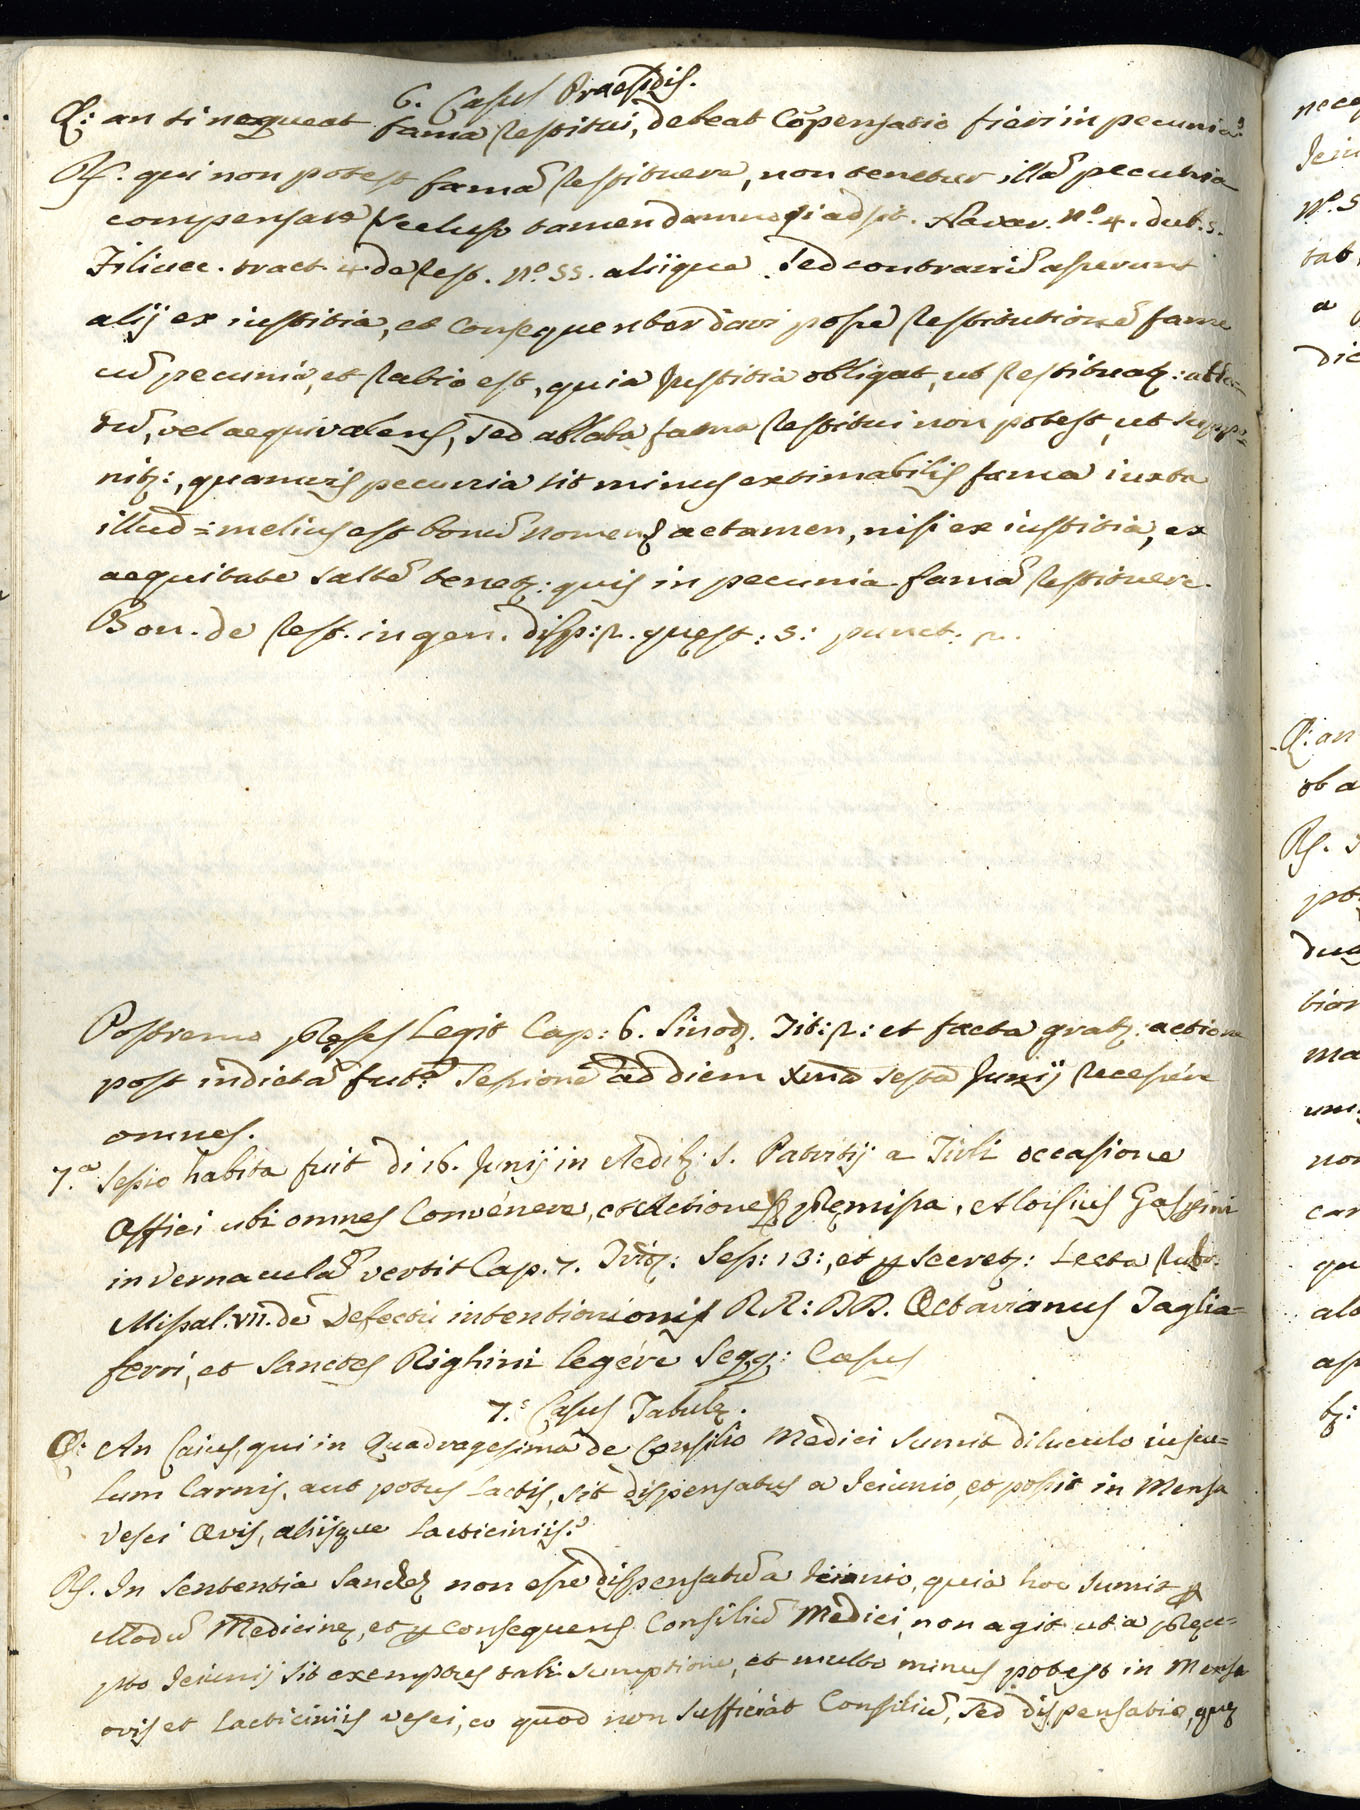 6. Casus Praesidis.
Q: an si nequeat fama restitui, debeat Cõpensatio fieri in pecunia?
R. qui non potest famã restituere, non tenetur illã pecunia
compensare secluso tamen damno si adsit. Navar. nº 4. dub. 5.
Filiuc. tract. 4. de rest. nº 55. aliique. Sed contrariũ asserunt
alij ex iustitia, et Consequenter dari posse restitutionẽ fame
cũ pecunia, et ratio est, quia Justitia obligat, ut restituatz: abla=
tũ, vel aequivalens, sed ablata fama restitui non potest, ut suppo=
nitz:, quamvis pecunia sit minus extimabilis fama iuxta
illud = melius est bonũ nomen actamen, nisi ex iustitia, ex
aequitate saltẽ tenetz: quis in pecunia famã restituere.
Bon. de rest. in gen. disp: 2. quęst: 5: punct. 2.
Postremo pręses Legit Cap: 6. Sinodz. Tit: 2: et facta gratz: actione
post indictã futã Sessionẽ ad diem sestã Junij recessére
omnes.
7.ª Sessio habita fuit di 16. Junij in Aedibz: S. Patritij a Tivli occasione
Officii ubi omnes Convénere, et Actiones pręmissa, Aloisius Gaspini
in vernaculã vertit Cap. 7. Tridz: Sess: 13:, et Secretz: Lecta rubr.
Missal. VII. de Defectu intentionis RR: DD. Octavianus Taglia=
ferri, et Sanctes Righini legére Seqq: Casus
7.s Casus Tabulę.
Q: An Caius, qui in Quadragesima de Consilio Medici sumit diluculo iuscu=
lum Carnis, aut potus Lactis, sit dispensatus a Ieiunio, et possit in Mensa
Vesci Ovis, aliisque Lacticiniis?
R. In Sententia Sanchez non esse dispensatũ a Ieiunio, quia hoc sumit p
Modũ Medicinę, et p consequens Consiliũ Medici, non agit ut a pręce=
pto Ieiunij sit exemptus tali sumptione, et multo minus potest in Mensa
ovis et Lacticiniis vesci, eo quod non sufficiat Consiliũ, sed dispensatio, quę